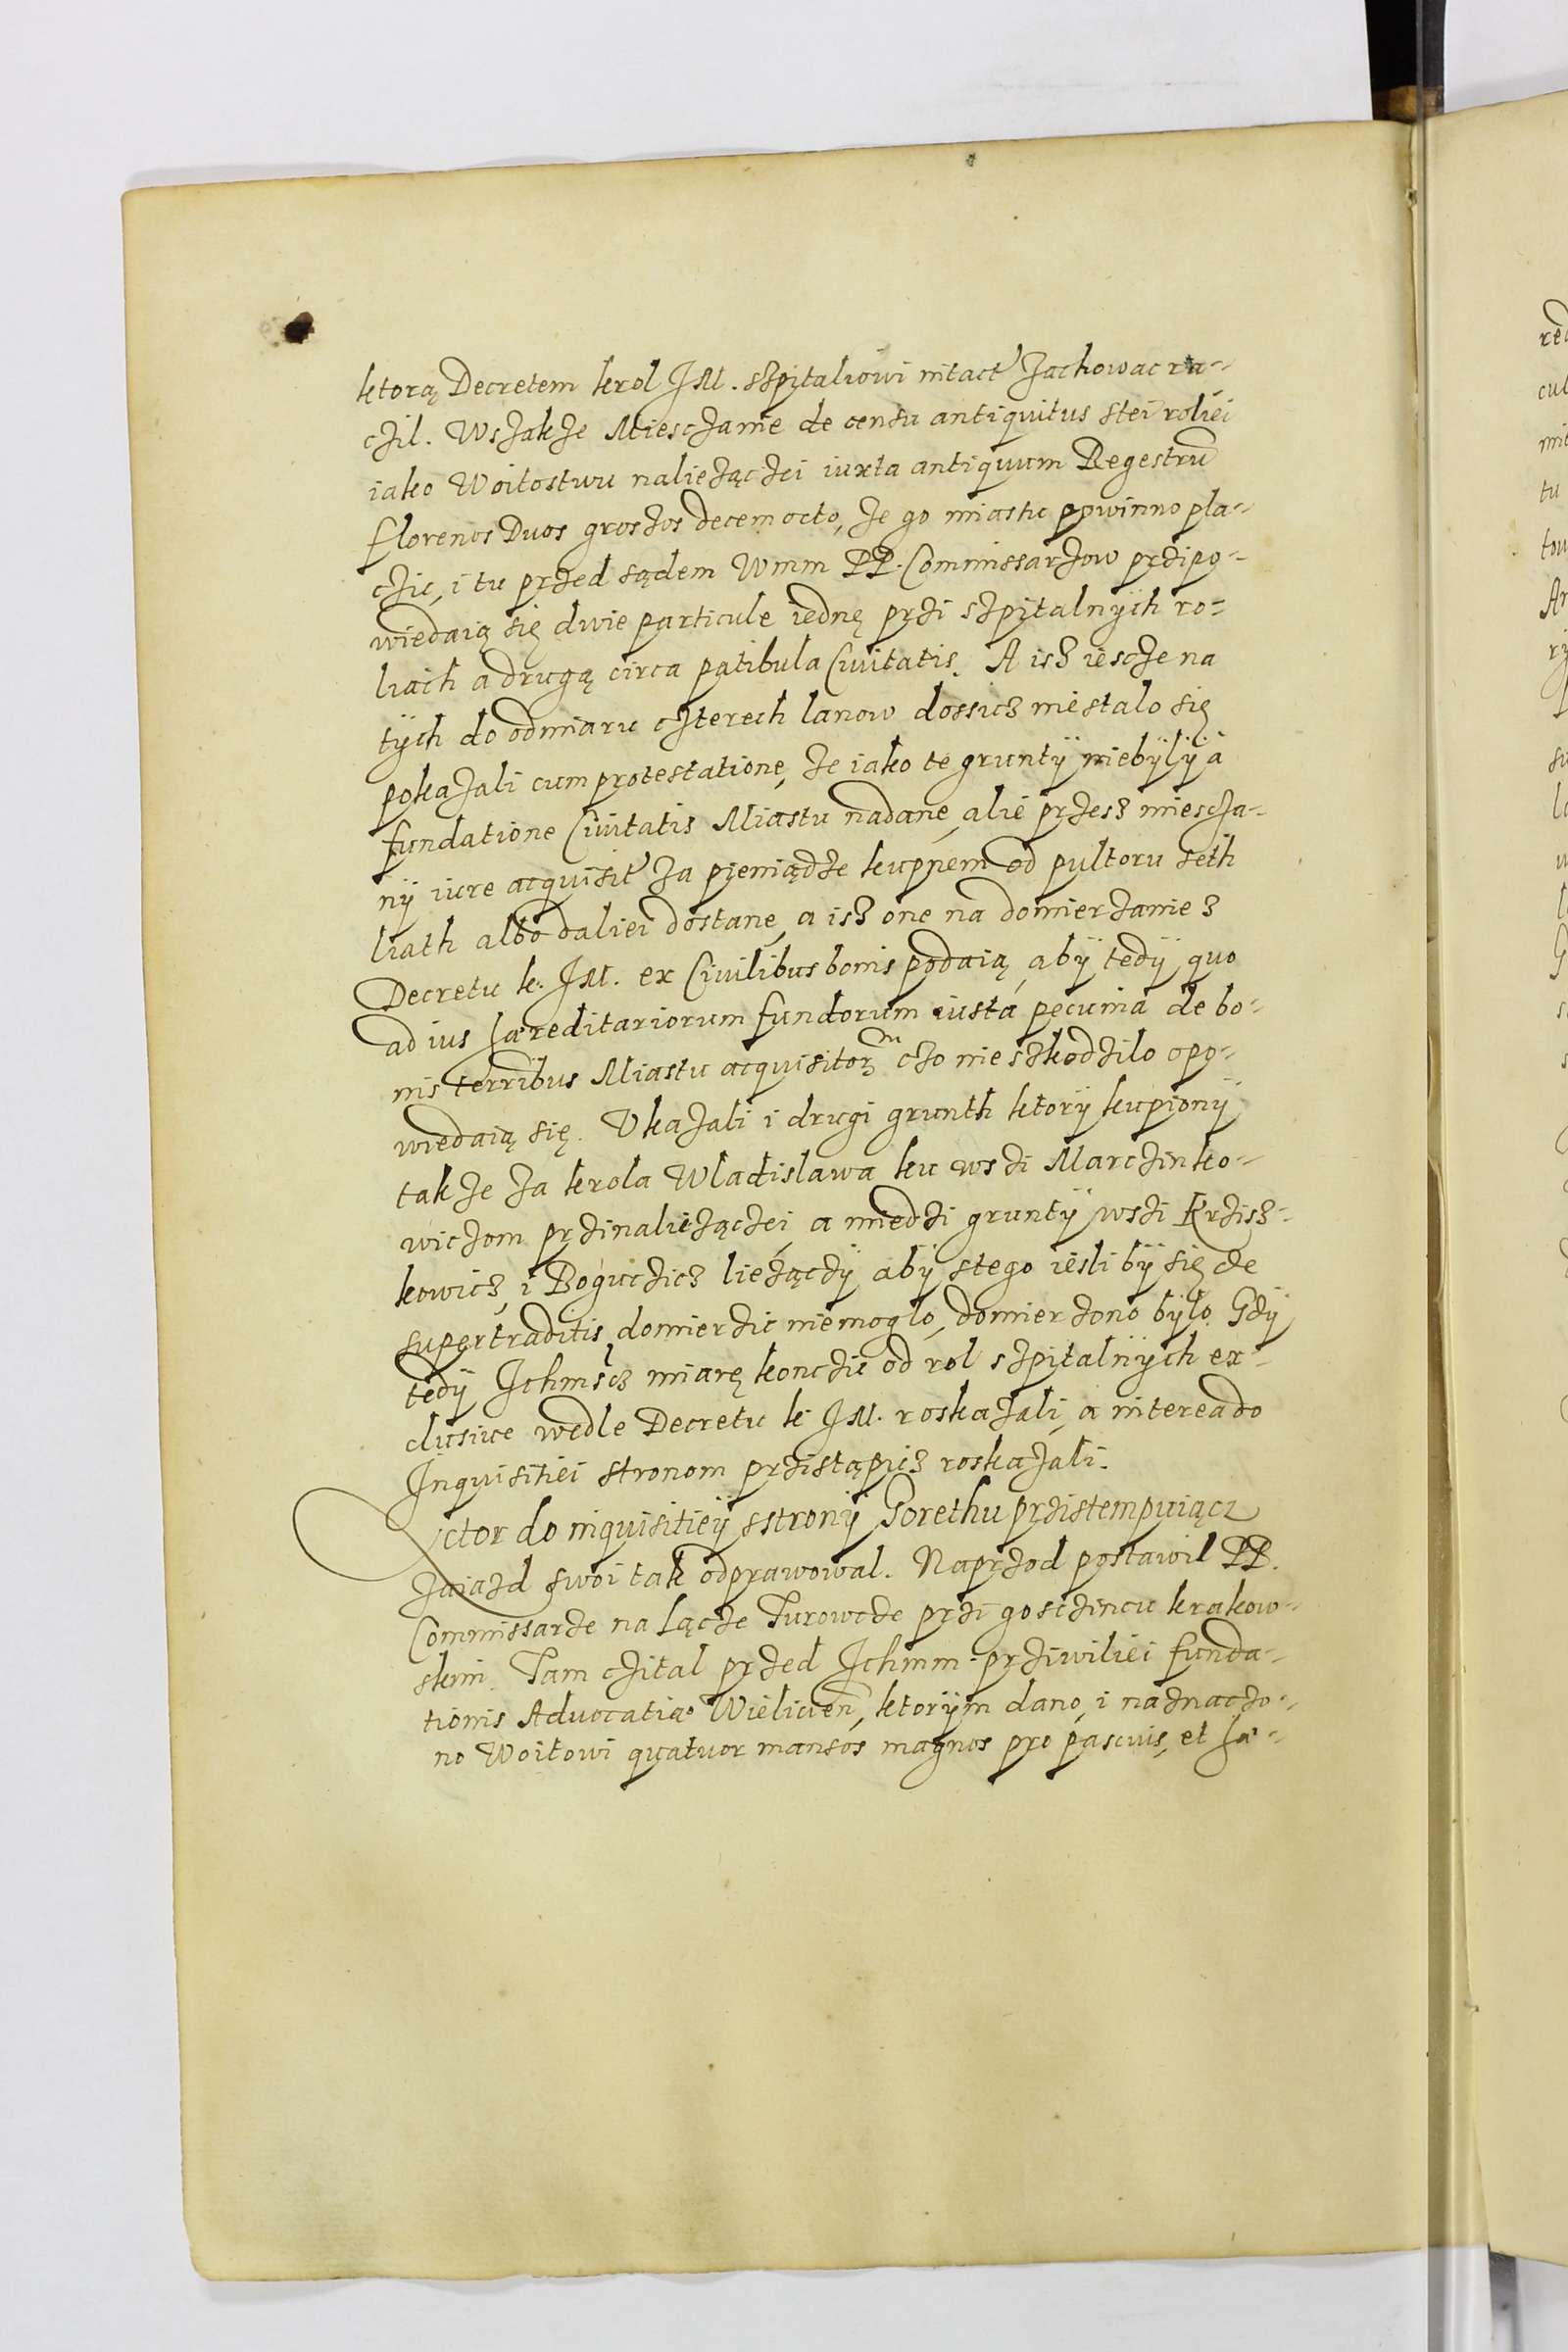 ktorą Decretem krol JM. szpitaliowi intact zachowac ra-
czil. Wszakze Miesczanie de censu antiquitus stei roliei
iako Woitostwu naliezączei iuxta antiquum Regestrũ
florenos Duos groszos decem octo, ze go miastu powinno pla-
czic, i tu przed sądem Wmm PP. Commissarzow przipo-
wiedaią się dwie particule iednę przi szpitalnÿch ro-
liach a drugą circa patibula Civitatis. A isz iescze na
tÿch do odmiaru czterech lanow dossicz niestalo się
pokazali cum protestatione, ze iako te gruntÿ niebÿlÿ a
fundatione Civitatis Miastu nadane, alie przesz miescza-
nÿ iure acquisit za pieniądze kupnem od pultoru seth
liath albo daliei dostane, a isz one na domierzanie z
Decretu k. JM. ex Civilibus bonis podaią, abÿ tedÿ quo
ad ius haereditariorum fundorum iusta pecunia de bo-
nis terribus Miastu acquisitor czo nieszkodzilo opo-
wiedaią się. Ukazali i drugi grunth ktorÿ kupionÿ
takze za krola Wladislawa ku wsi Marczinko-
wiczom przinaliezączei, a miedzi gruntÿ wsi Krzisz-
kowicz, i Boguczicz liezączÿ abÿ stego iesli bÿ się de
supertraditis domierzic niemoglo, domierzono bÿlo. Gdÿ
tedÿ Jchmscz miarę konczic od rol szpitalnÿch ex-
clusive wedle Decretu k JM. roskazali, a interea do
Inquisitiei stronom przistąpicz roskazali.
Actor do inquisitieÿ sstronÿ Gorethu przistempuiącz
zaiazd swoi tak odprawowal. Naprzod postawil PP.
Commissarze na Lącze Turowcze przi gosczincu krakow-
skim. Tam czital przed Jchmm. prziviliei funda-
tionis Advocatiae Wielicien, ktorÿm dano, i naznaczo-
no Woitowi quatuor mansos magnos pro pascuis, et ha-